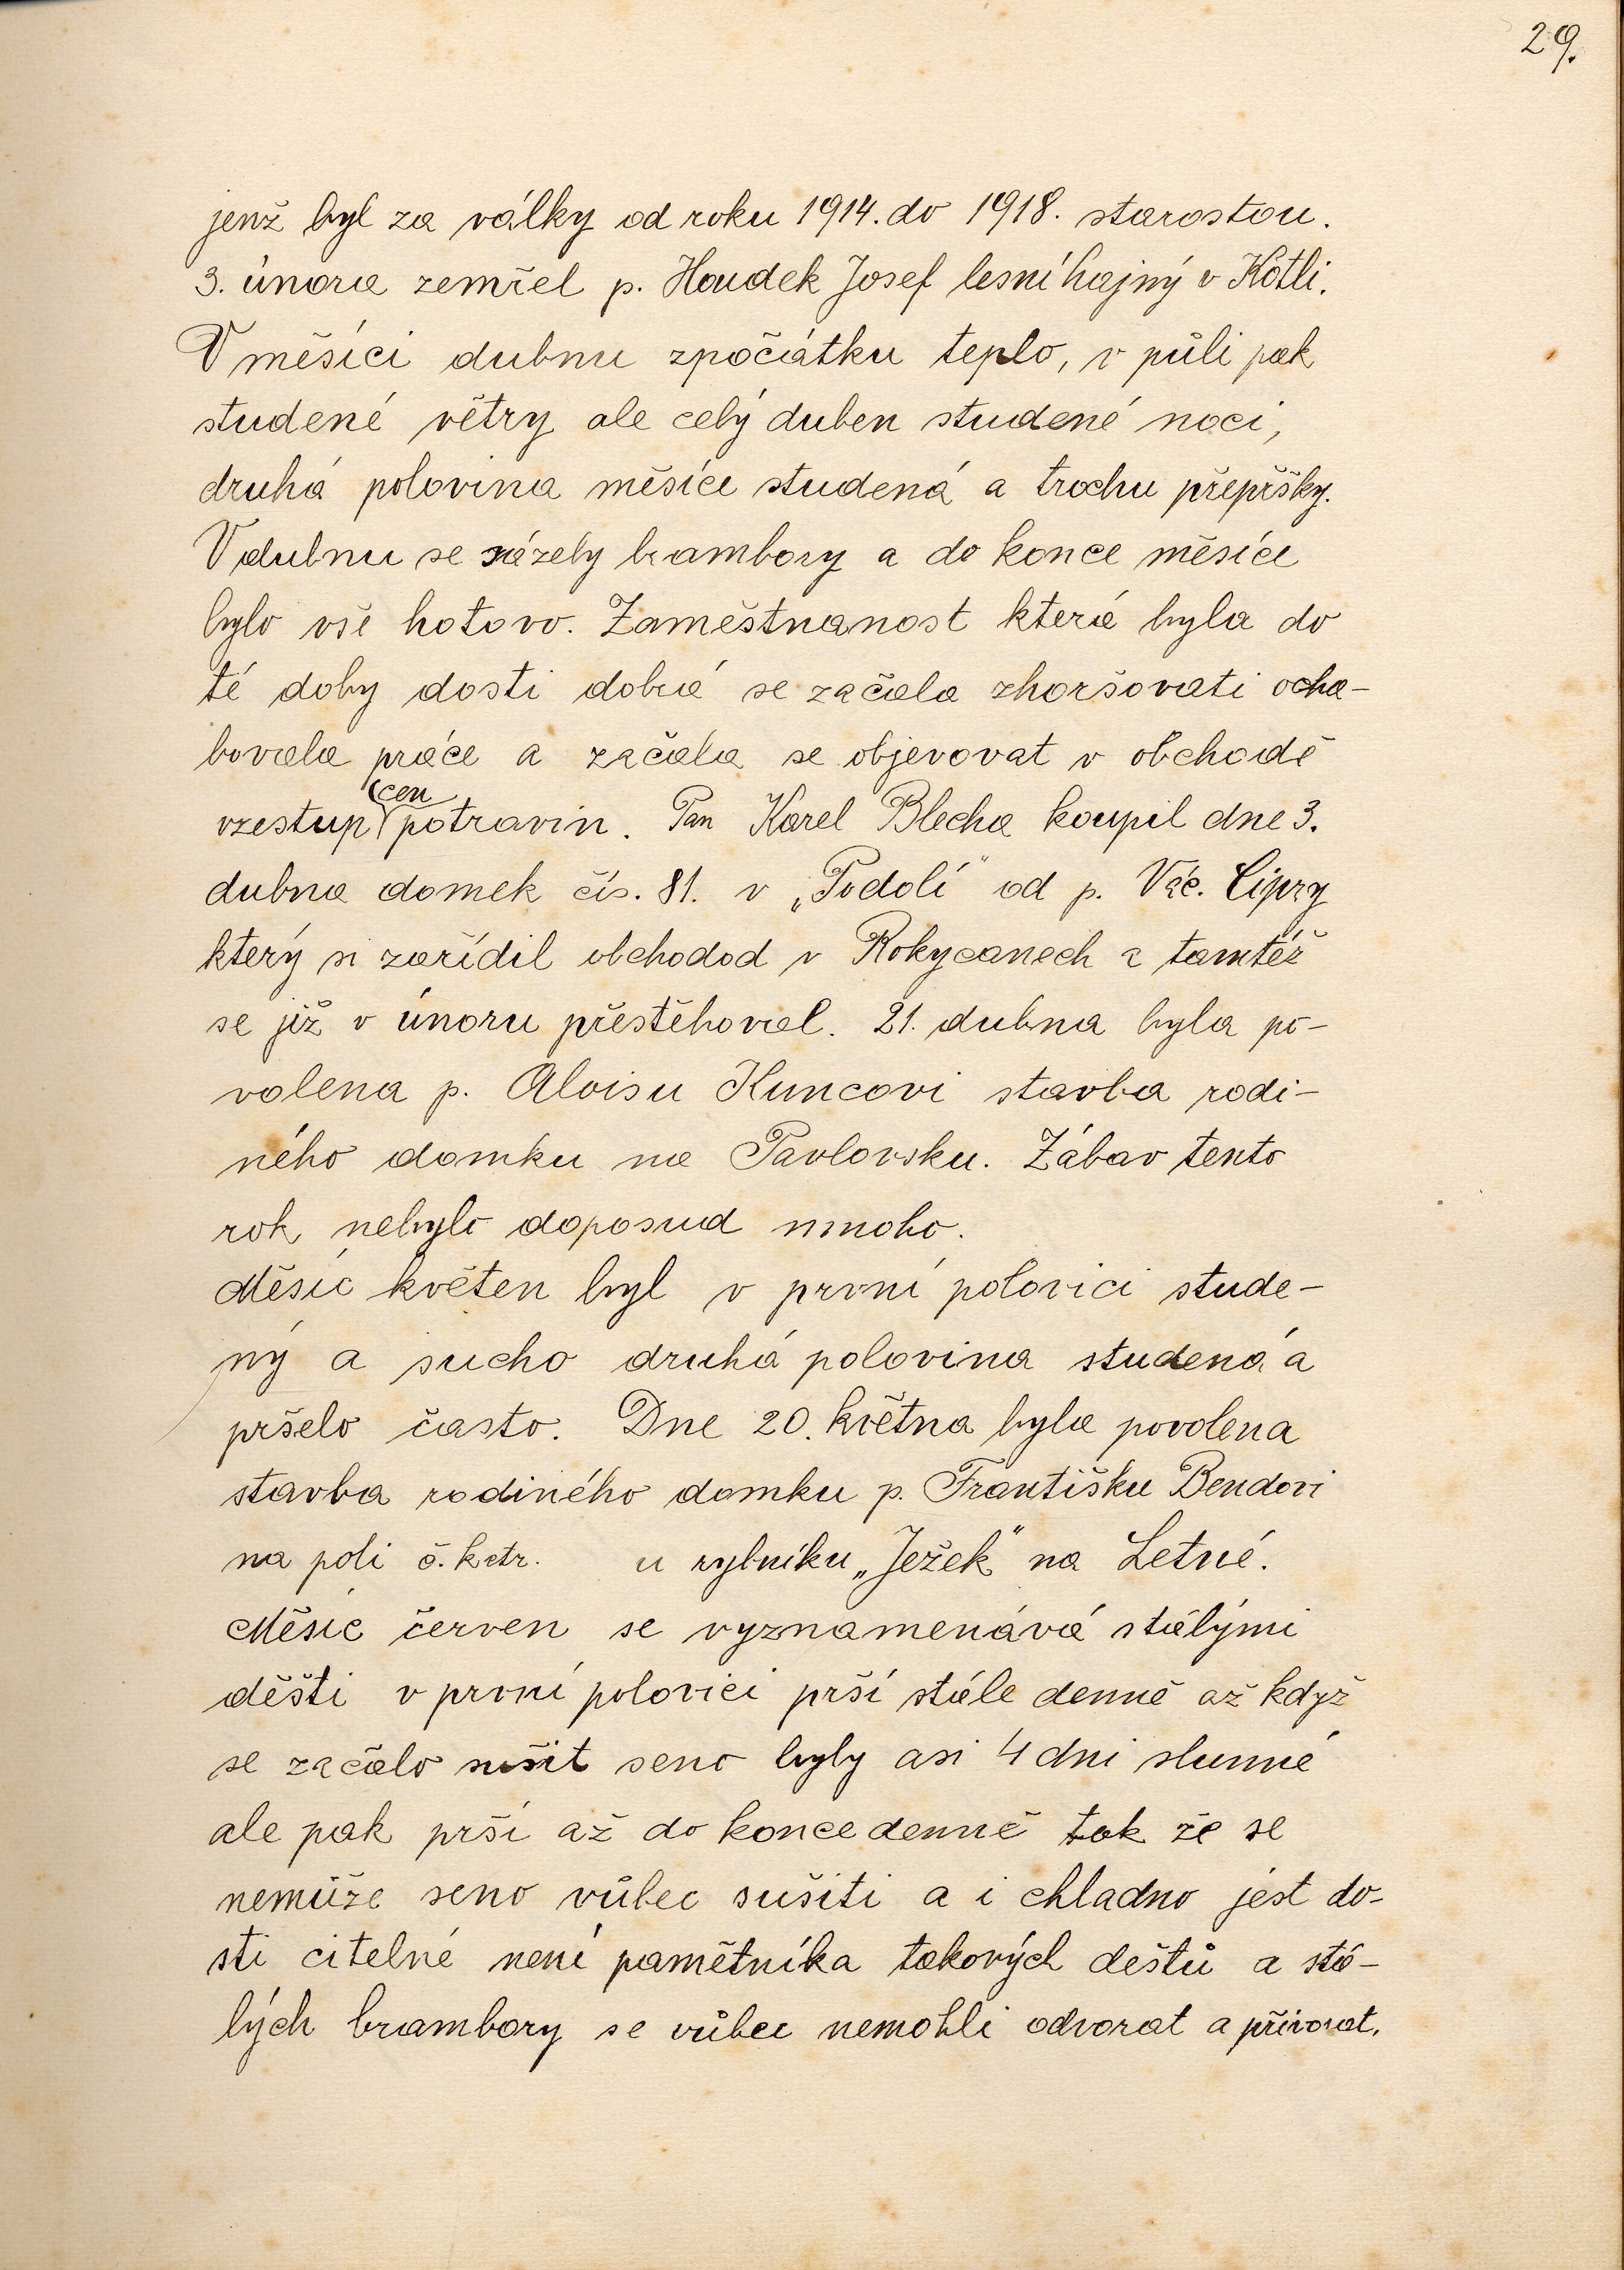 29.
jenž byl za války od roku 1914. do 1918. starostou.
3. února zemřel p. Houdek Josef lesní hajný v Kotli.
V měsíci dubnu zpočátku teplo, v půli pak
studené větry ale celý duben studené noci,
druhá polovina měsíce studená a trochu přepršky.
V dubnu se sázely brambory a do konce měsíce
bylo vše hotovo. Zaměstnanost která byla do
té doby dosti dobrá se začala zhoršovati ocha-
bovala práce a začala se objevovat v obchodě
vzestup cen potravin. Pan Karel Blecha koupil dne 3.
dubna domek čís. 81. v „Podolí" od p. Vác. Cipry
který si zařídil obchodod v Rokycanech a tamtéž
se již v únoru přestěhoval. 21. dubna byla po-
volena p. Aloisu Kuncovi stavba rodi-
ného domku na Pavlovsku. Zábav tento
rok nebylo doposud mnoho.
Měsíc květen byl v první polovici stude-
ný a sucho druhá polovina studená a
pršelo často. Dne 20. května byla povolena
stavba rodiného domku p. Františku Bendovi
na poli č. katr. u rybníku „Ježek" na Letné.
Měsíc červen se vyznamenává stálými
děšti v první polovici prší stále denně až když
se začalo sušit seno byly asi 4 dni slunné
ale pak prší až do konce denně tak že se
nemůže seno vůbec sušiti a i chladno jest do-
sti citelné není pamětníka takových deštů a stá-
lých brambory se vůbec nemohli odvorat a přivorat.